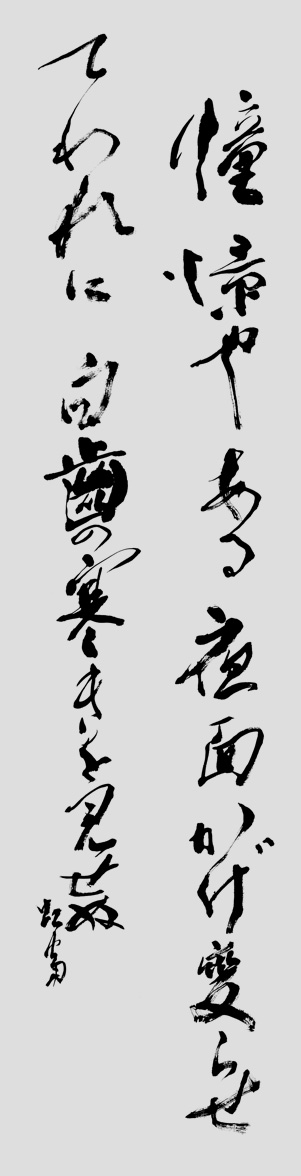 憧憬やある夜面かげ變らせ
てわれに白齒の寒きを見せぬ